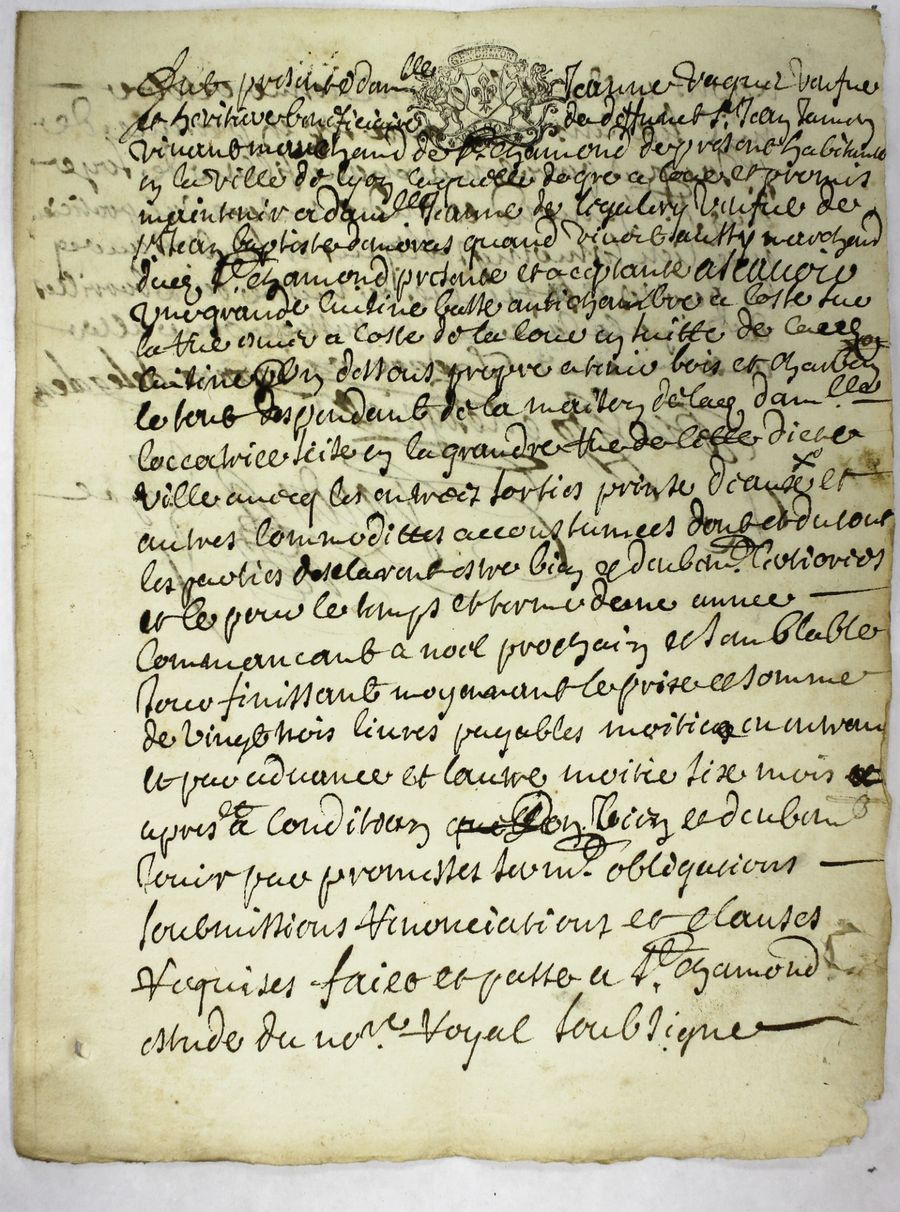 Fut presante dam.lle Jeanne vaques veufve
et heritiere beneficiaire de deffunct Sr. Jean
vivant marchand de St. Chamond de presant habitante
en la ville de lyon laquelle de gre a loué et promis
maintenir a dam.lle Jeanne de veufve de
sr Jean baptiste quand vivoit aussy marchand
dud. St. Chamond presente et acceptante a scavoir
une grande cuisine basse antichambre a coste sur
la rue a coste de la cour en suitte de
cuisine un dessous propre a tenir bois et charbon
le tout despendant de la maison de lad. dam.lle
locatrice scize en la grandre rue de cette dicte
ville avecq les entrees sorties prinse deaux et
autres commodittes accoustumees dont et du tout
les parties desclarent estre bien et deubem.t
et ce pour le temps et terme dune annee
commancant a noel prochain et semblable
jour finissant moyennant le prise et somme
de vingt trois livres payables moitie en entrant
et par advance et lautre moitie six mois
apres et a condition den bien et deubem.t
jouir par promesses serm.t obligations
soubmissions renonciations et clauses
requises faict et passe a St. Chamond
estude du no.re royal soubsigne